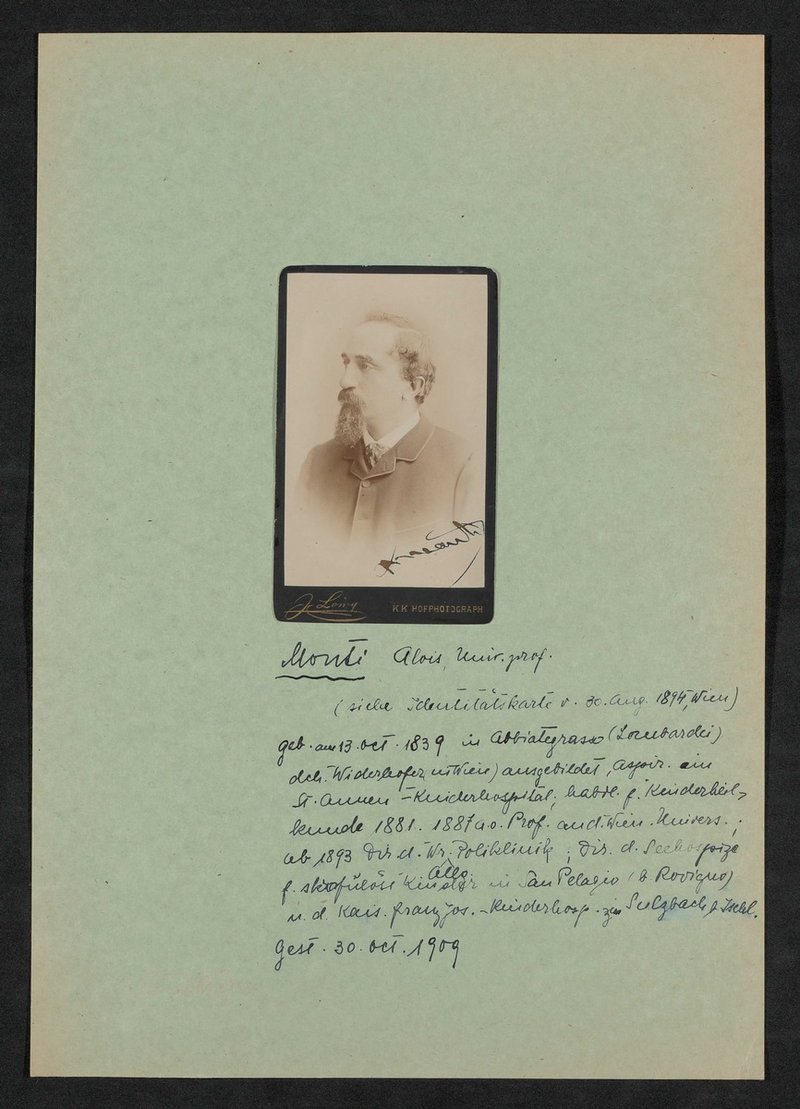 J. Löwy
K K HOFPHOTOGRAPH
Monti Alois, Univ. prof.
(siehe Identitätskarte v. 30. Aug. 1894, Wien)
geb. am 13. oct. 1839 in Abbiategrasso (Lombardei)
dch. Widerhofer in Wien) ausgebildet, aspir. am
St. Annen-Kinderhospital; habil. f. Kinderheil-
kunde 1881. 1887 a.o. Prof. an d. Wien. Univers.;
ab 1893 Dir. d. Allg. Wr. Poliklinik; Dir. d. Seehospize
f. skrofulöse Kinder in San Pelagio (b Rovigno)
u. d. Kais. Franz Jos.-Kinderhosp. zu Sulzbach b Ischl.
Gest. 30. oct. 1909